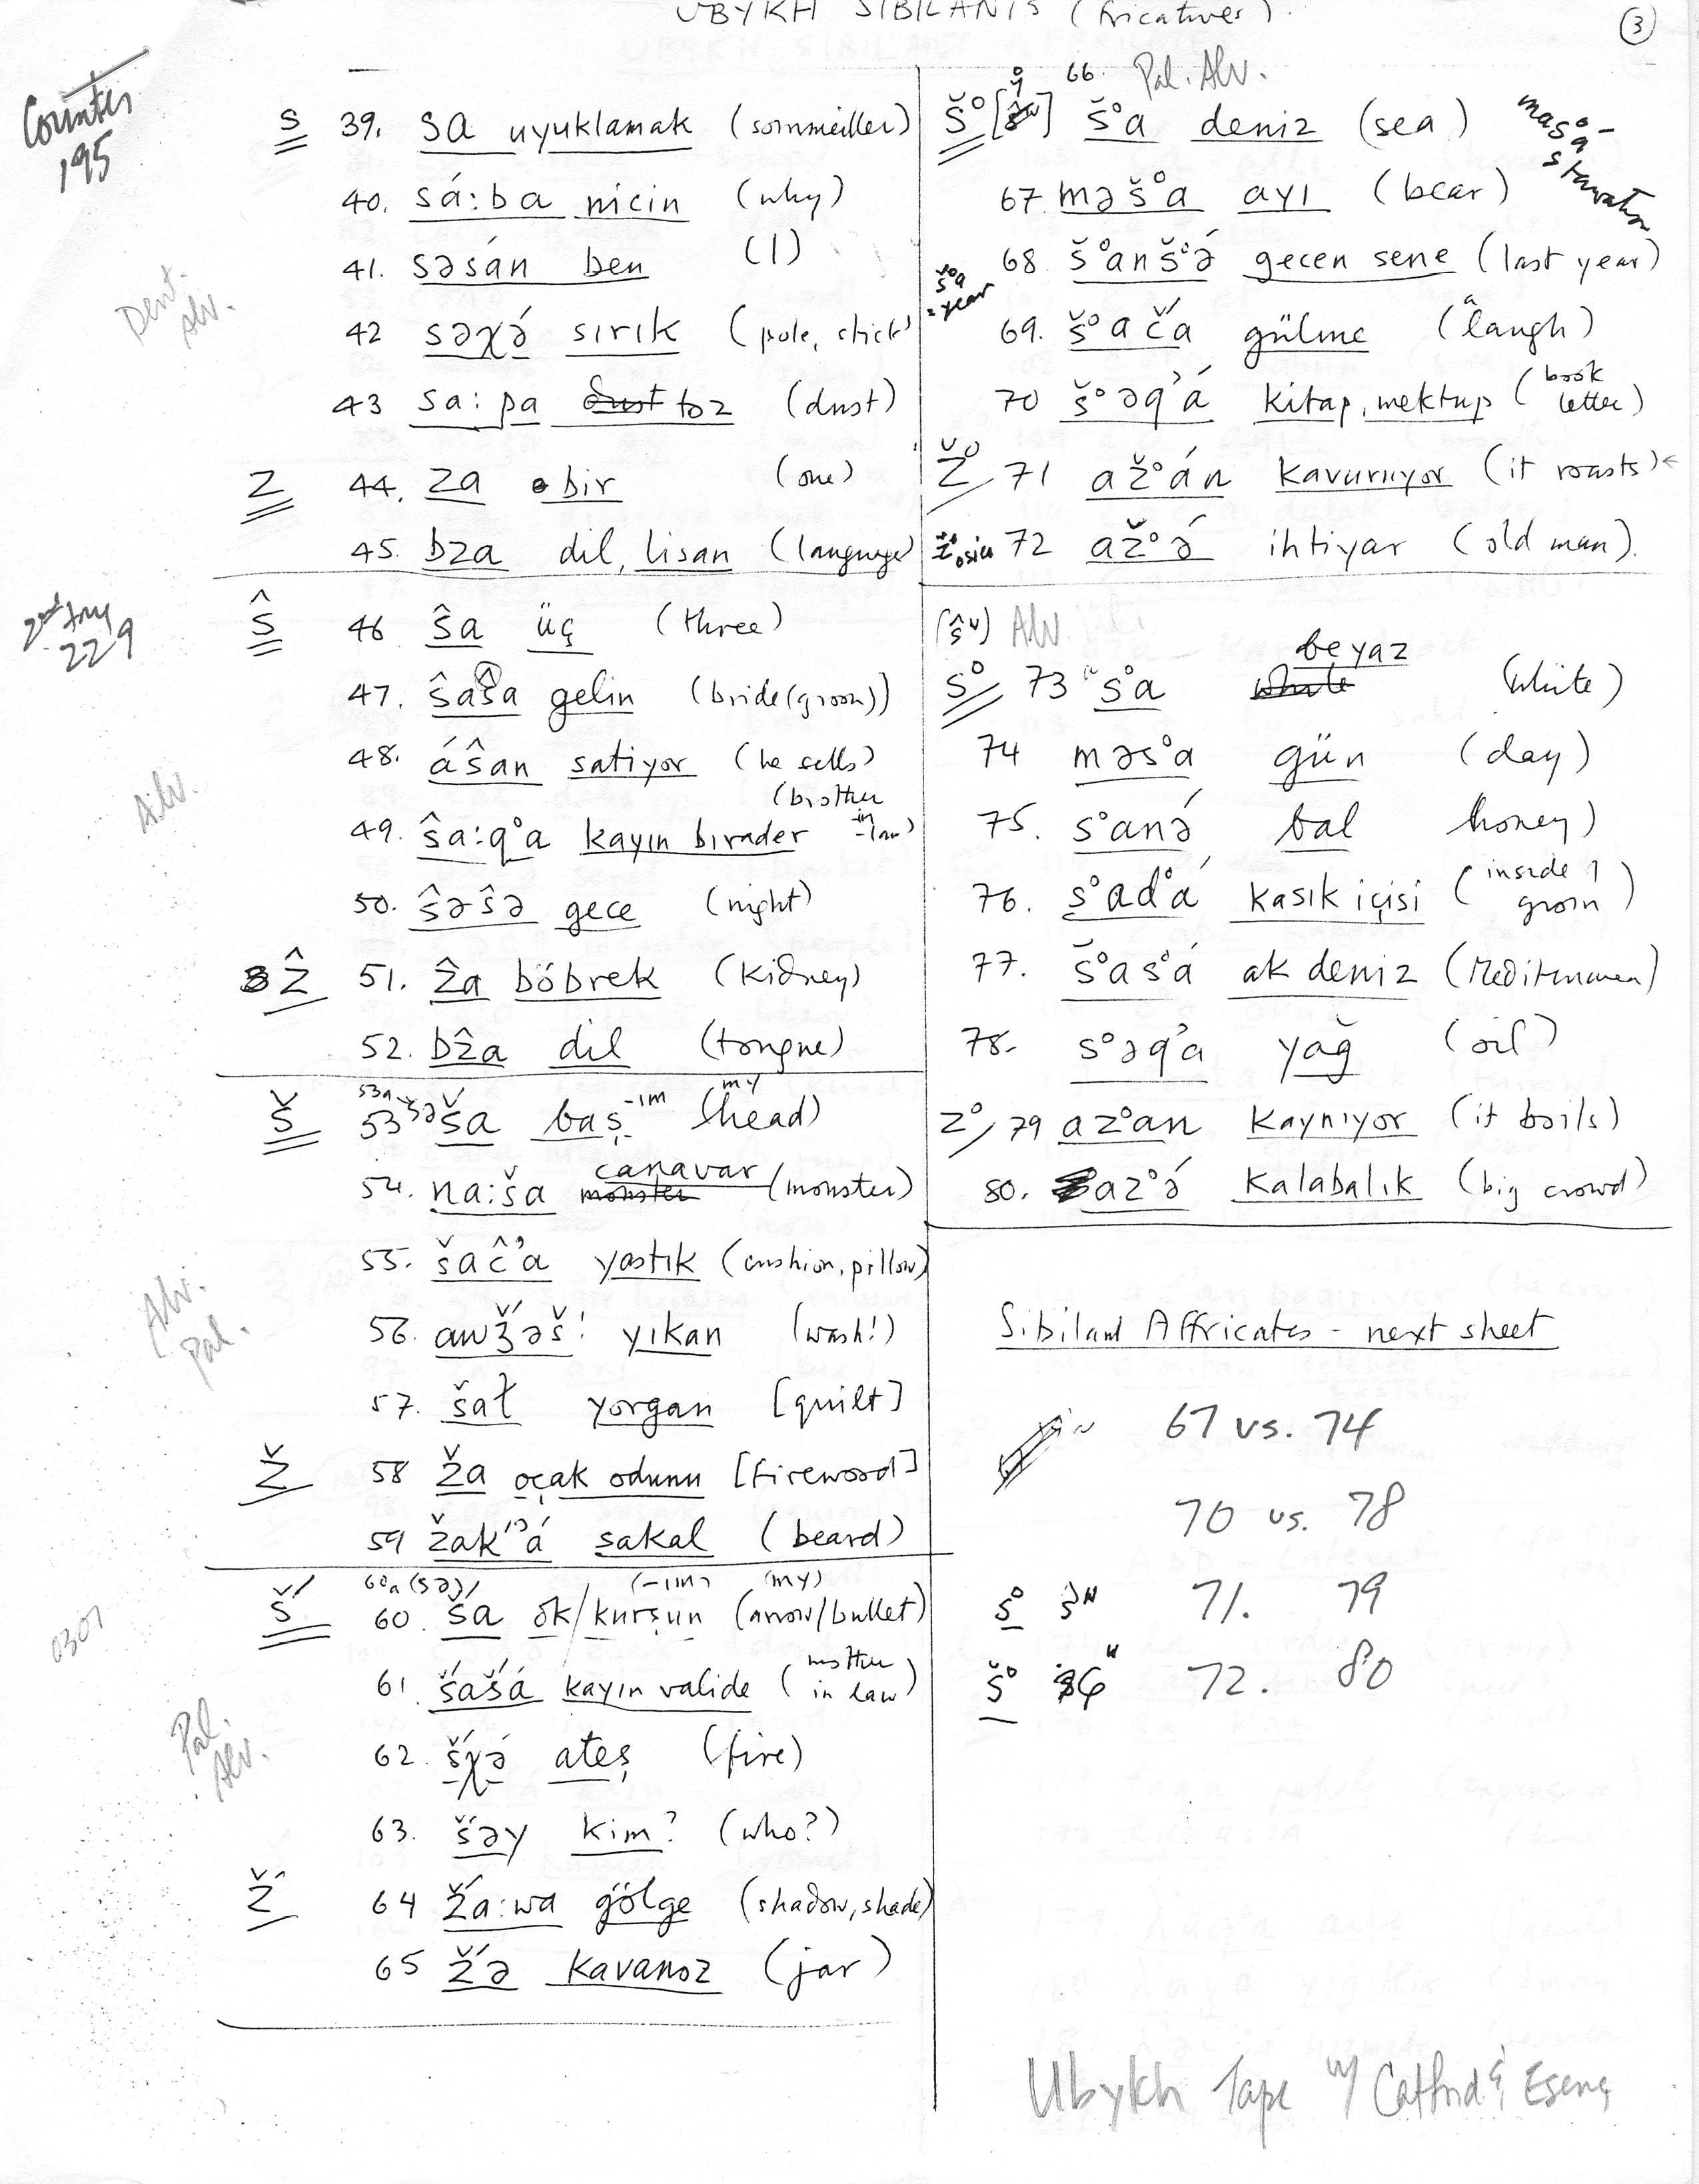 UBYKH SIBILANTS (fricatives).
3
Counter
195
s 39. sa uyuklamak (sommeiller)
40. sá:ba nicin (why)
41. səsán ben (I)
Dent.
Alv.
42 səχə́ sırık (pole, stick)
43 sa:pa dust toz (dust)
z 44. za bir (one)
45. bza dil, lisan (language)
2nd try
229
ŝ 46 ŝa üç (three)
47. ŝaŝa gelin (bride(groom))
48. áŝan satiyor (he sells)
Alv.
49. ŝa:q°a kayın bırader (brother in -law)
50. ŝəŝə gece (night)
ẑ 51. ẑa böbrek (kidney)
52. bẑa dil (tongue)
š 53a 53 səša baş-ım (my head)
54. na:ša monster canavar (monster)
55. šaĉ'a yastık (cushion, pillow)
Alv.
Pal.
56. awǯ́əš! yıkan (wash!)
57. šaɬ yorgan [quilt]
ž 58 ža ocak odunu [firewood]
59 žak''á sakal (beard)
š́ 60a (sə) (-ım) (my)
60. š́a ok/kurşun (arrow/bullet)
0307
61 š́aš́á kayın valide (mother in law)
Pal.
Alv.
62. š́χə́ ateş (fire)
63. š́əy kim? (who?)
ž́ 64 ž́a:wa gölge (shadow, shade)
65 ž́ə kavanoz (jar)
66. Pal. Alv.
š° š°a deniz (sea)
masºá- starvation
67. məš°a ayı (bear)
68 š°anš°ə́ gecen sene (last year)
š°a = year
69. š°ača gülme (laugh)
70 š°əq'á kitap, mektup (book letter)
ž° 71 až°án kavurııyor (it roasts)
72 až°ə́ ihtiyar (old man).
(ŝʷ) Alv
s° 73 s°a white beyaz (white)
74 məs°a gün (day)
75. s°anə́ bal honey)
76. s°ad°á kasık içisi (inside groin)
77. š°as°á ak deniz (Mediterranean)
78. s°əq'a yağ (oil)
z° 79 az°an kaynıyor (it boils)
80. az°ə́ kalabalık (big crowd)
Sibilant Affricates - next sheet
67 vs. 74
70 vs. 78
s° ŝʷ 71. 79
š° 72. 80
Ubykh Tape w/ Catford & Esenç